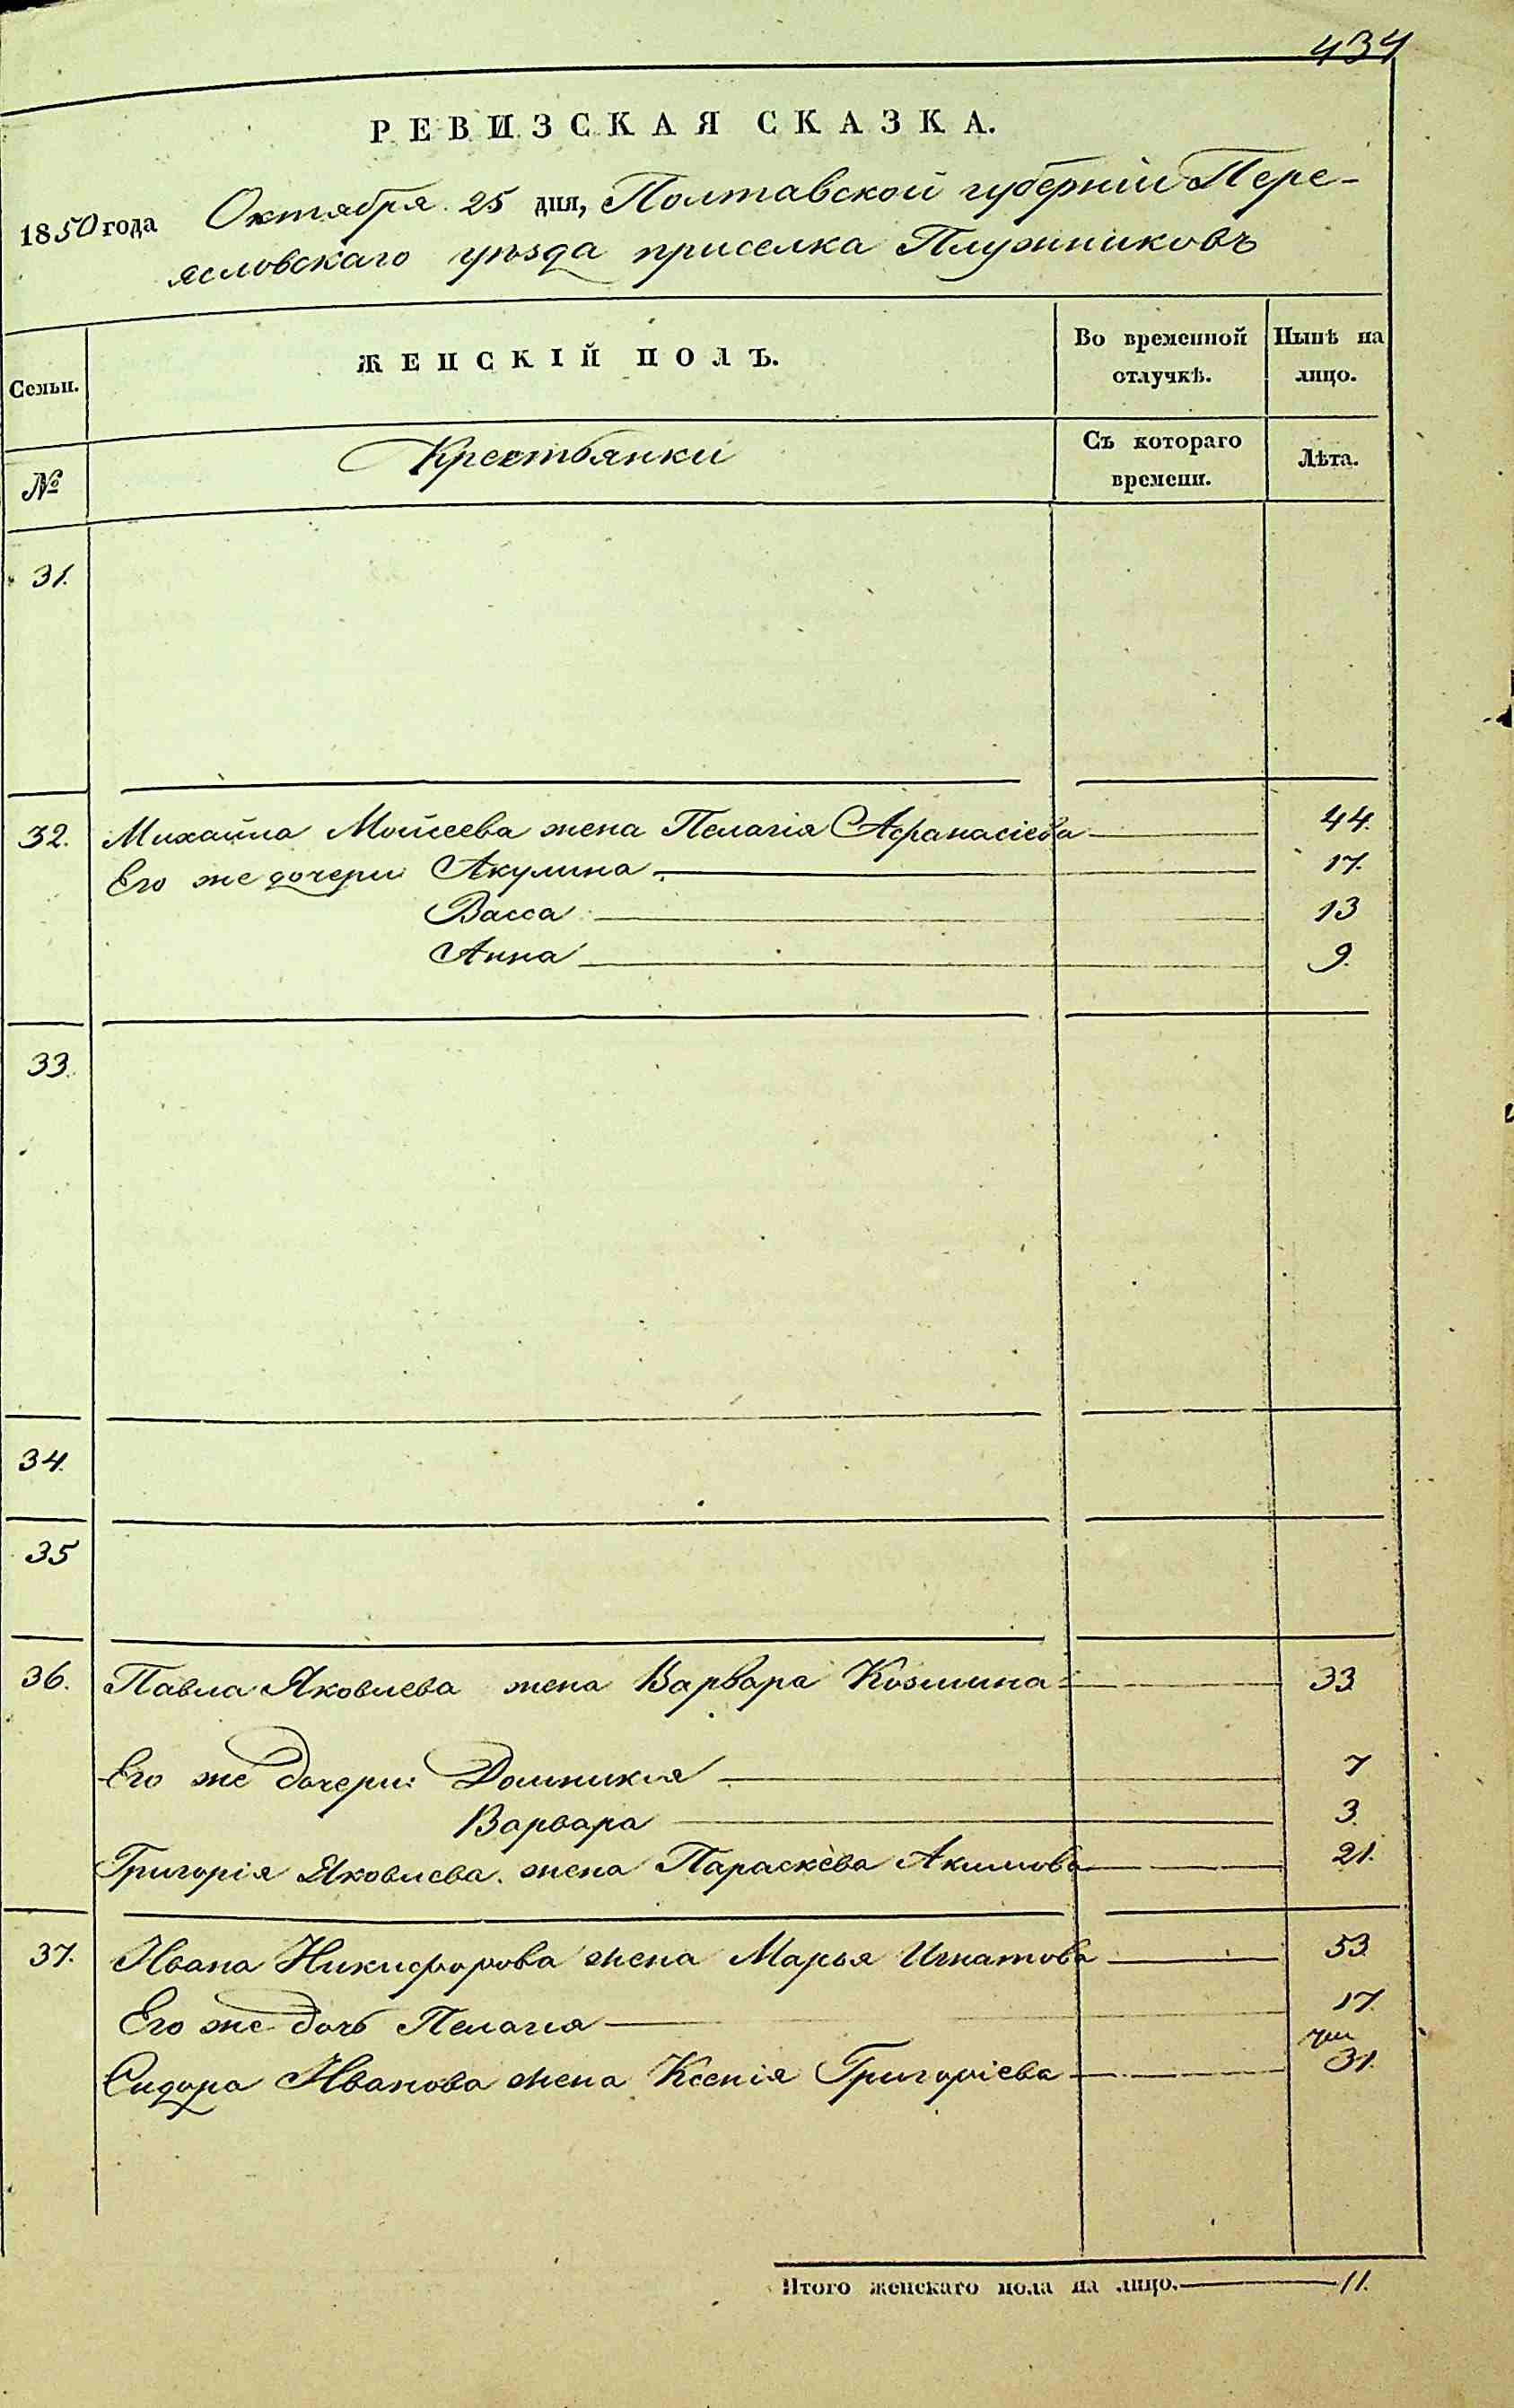 434
РЕВИЗСКАЯ СКАЗКА.
1850 года Октября 25 дня, Полтавской губерніи Пере-
ясловскаго уѣзда приселка Плужниковъ
Семьи.
ЖЕНСКІЙ ПОЛЪ.
Во временной отлучкѣ.
Нынѣ на лицо.
№
Крестьянки
Съ котораго времени.
Лѣта.
31.
32. Михайла Мойсеева жена Пелагія Афранасіева 44.
Его же дочери Акулина 17.
Васса 13
Анна 9.
33.
34.
35
36. Павла Яковлева жена Варвара Козмина 33
Его же дочери: Домникия 7
Варвара 3.
Григорія Яковлева жена Параскева Акимова 21.
37. Ивана Никифорова жена Марья Игнатова 53.
Его же дочь Пелагия 17.
Сидора Иванова жена Ксенія Григоріева 31.
Итого женскаго пола на лицо. 11.